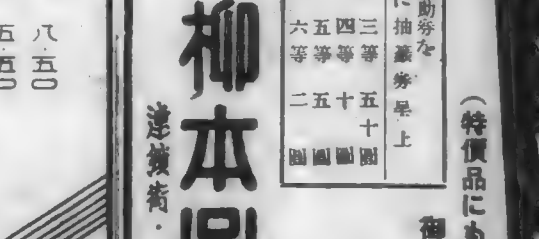 (特價品にも
御
助券を
に抽籤券呈上
三等 五十圓
四等 十圓
五等 五圓
六等 二圓
柳本
街・
八五〇
五五〇